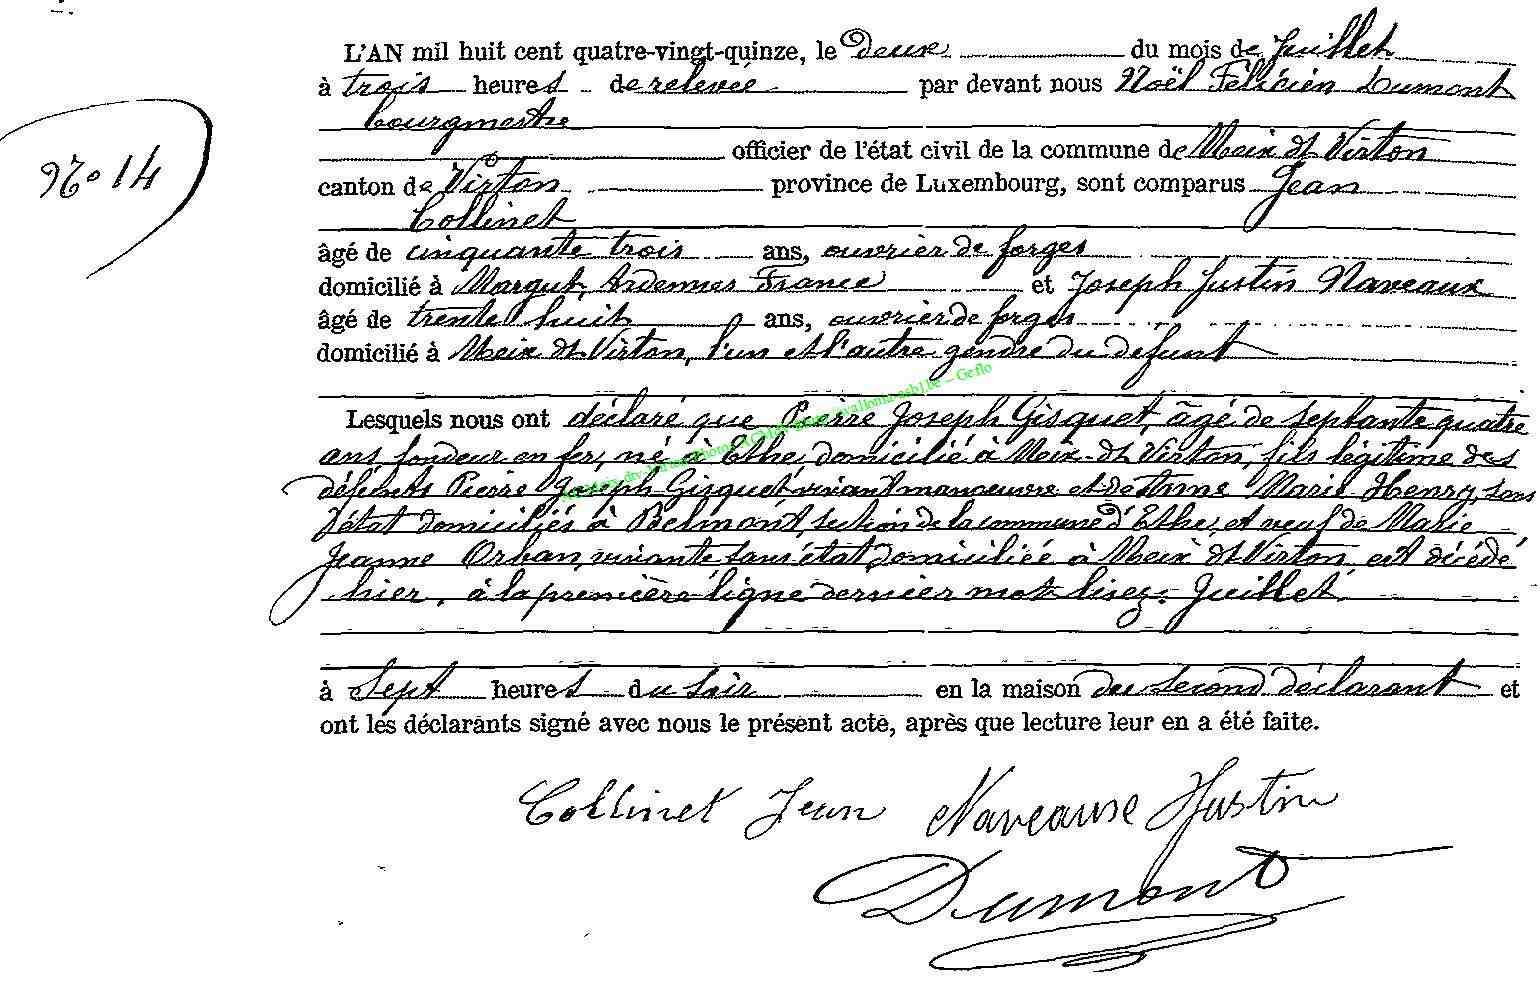 L'AN mil huit cent quatre-vingt-quinze, le deux du mois de Juillet
à trois heures de relevée par devant nous Noël Félicien Dumont
bourgmestre
officier de l'état civil de la commune de Meix dt Virton
N° 14
canton de Virton province de Luxembourg, sont comparus Jean
Collinet
âgé de cinquante trois ans, ouvrier de forges
domicilié à Margut, Ardennes France et Joseph Justin Naveaux
âgé de trente huit ans, ouvrier de forges
domicilié à Meix dt Virton, l'un et l'autre gendre du defunt
Lesquels nous ont déclaré que Pierre Joseph Gisquet, âgé de septante quatre
ans, fondeur en fer, né à Ethe, domicilié à Meix-dt Virton, fils légitime des
défunts Pierre Joseph Gisquet vivant manoeuvre et de Anne Marie Henry, sans
état domiciliés à Belmont, section de la commune d'Ethe, et veuf de Marie
Jeanne Orban, vivante sans état domiciliée à Meix dt Virton est décédé
hier, à la première ligne dernier mot lisez: Juillet.
à Sept heures du soir en la maison du second déclarant et
ont les déclarants signé avec nous le présent acte, après que lecture leur en a été faite.
Collinet Jean Naveause Justin
Dumont